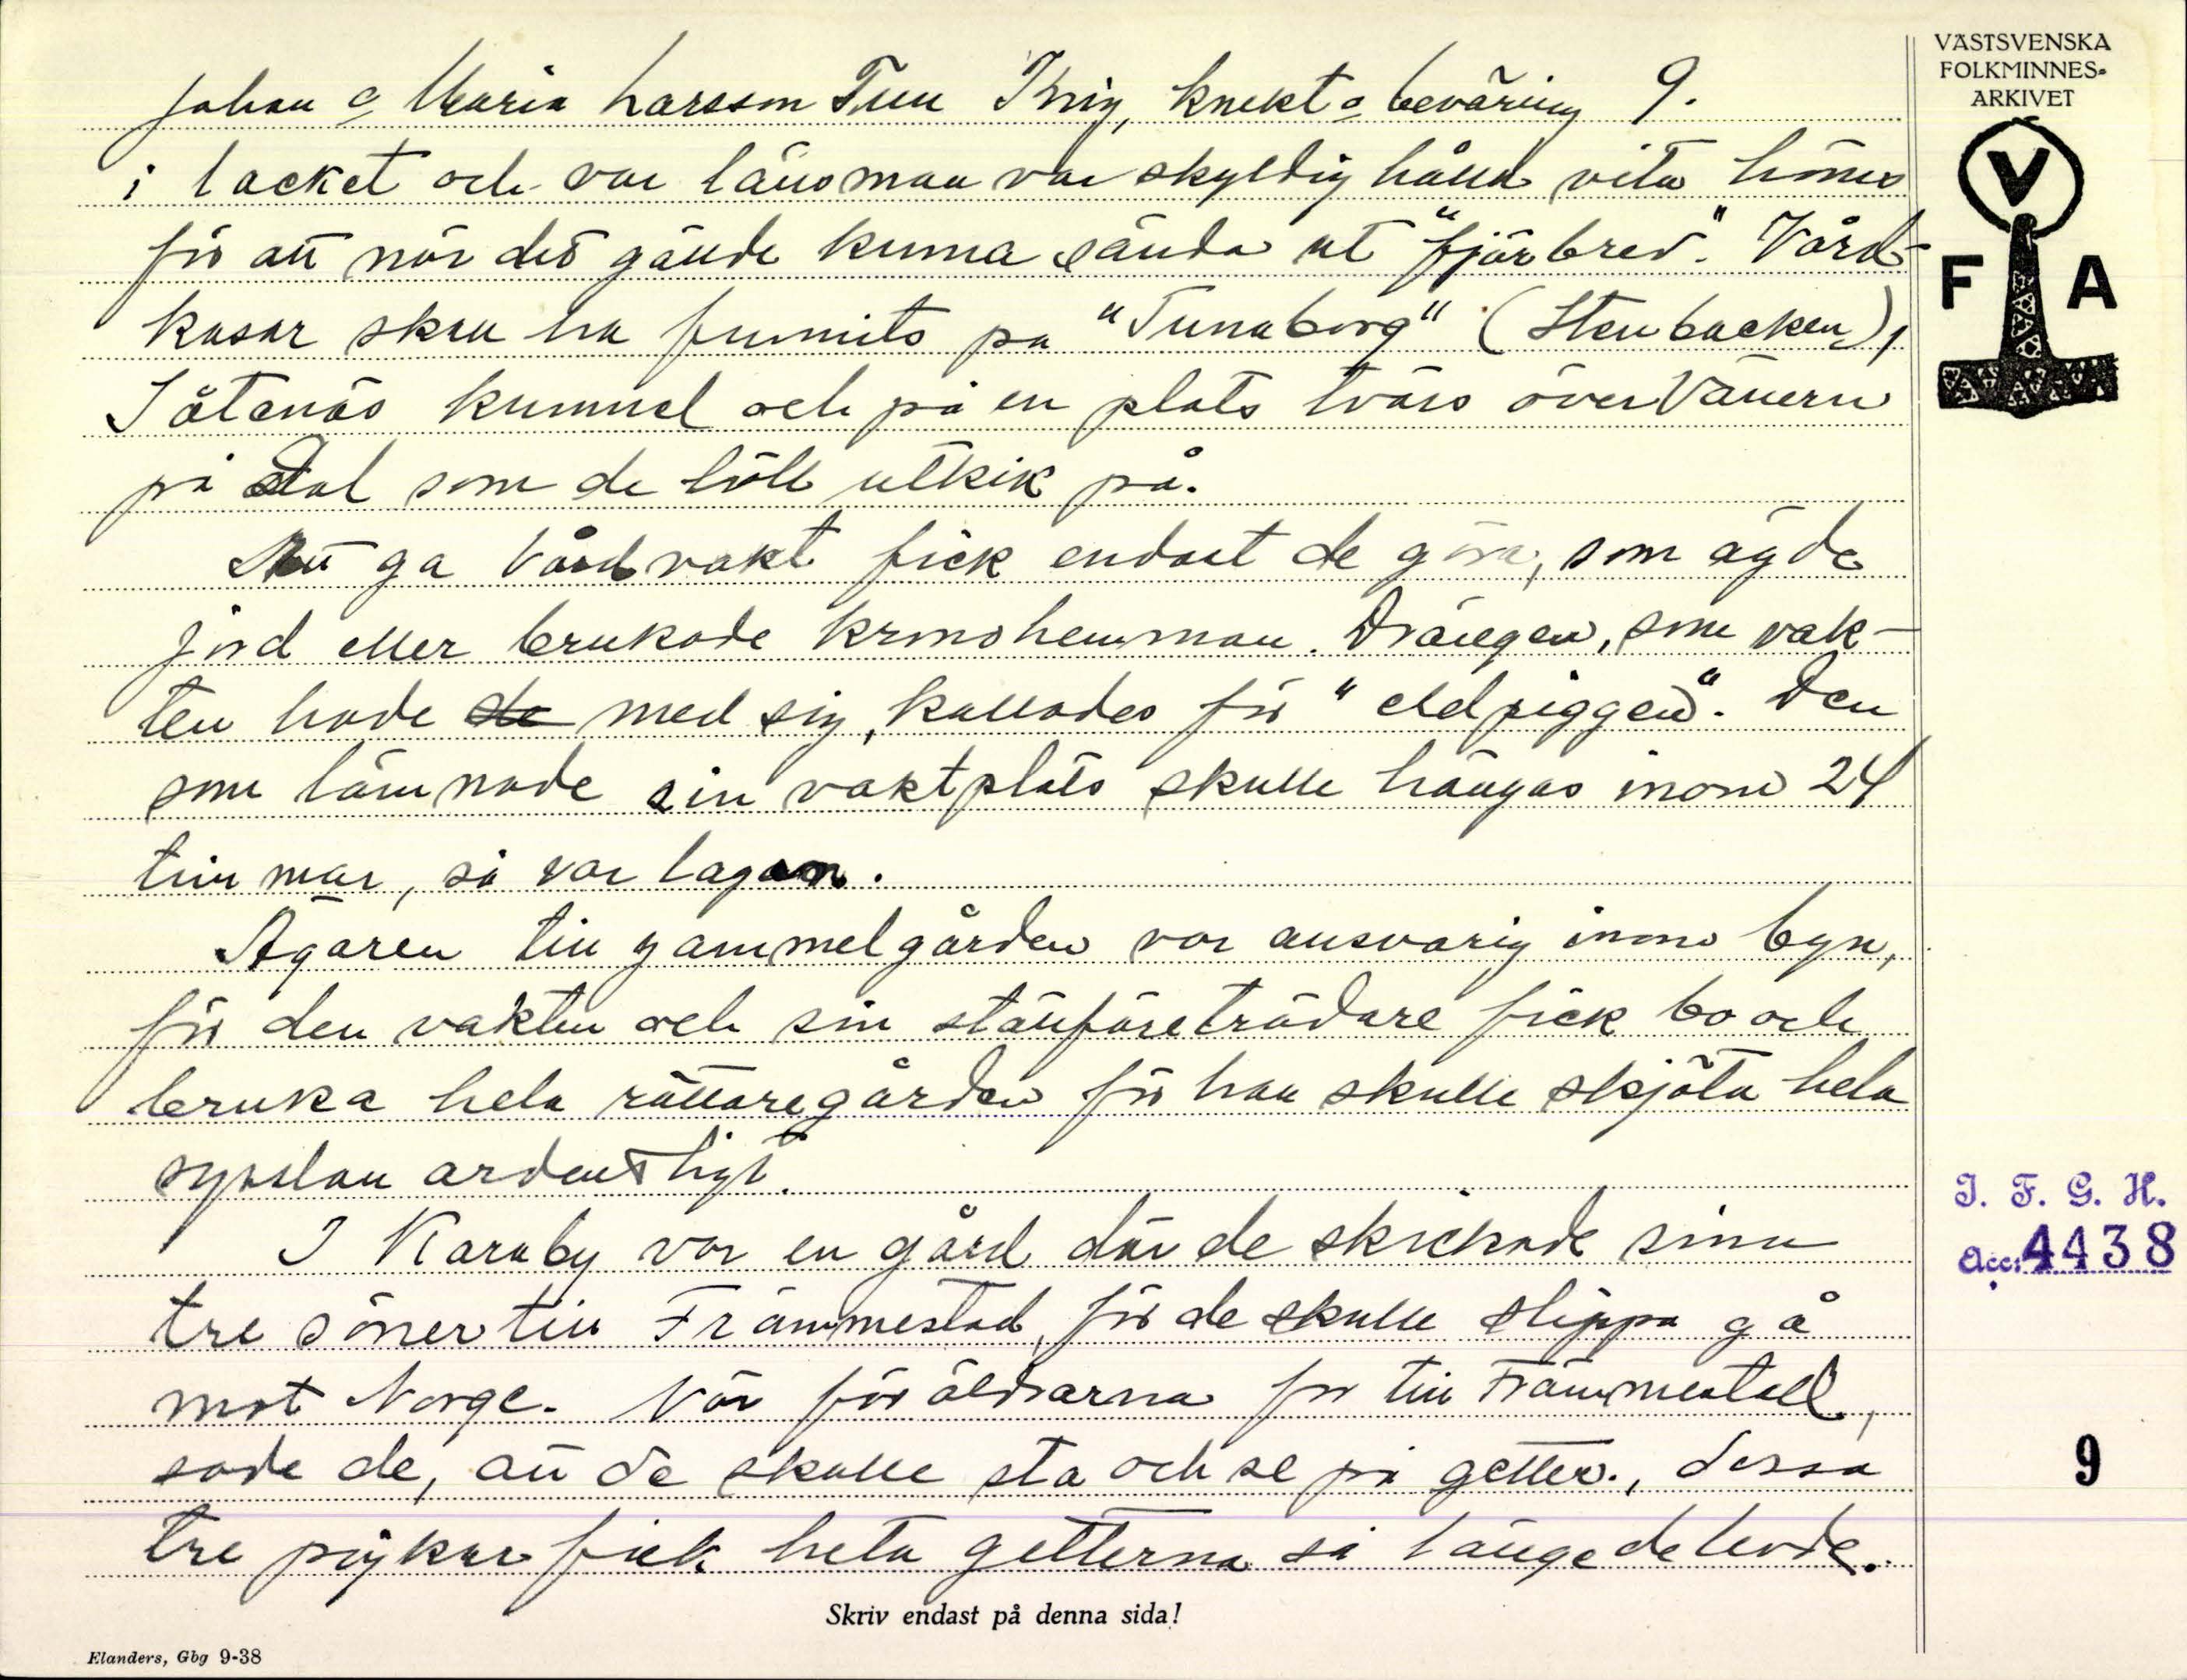 Johan o Maria Larsson Tun Krig, knekt o beväring 9.
i lacket och var länsman var skyldig hålla vita höns
för att när det gällde kunna sända ut "fjärbrev". Vård-
kasar skall ha funnits på "Tunaborg" (Stenbacken),
Såtenäs kummel och på en plats tvärs över Vänern
på Dal som de höll utkik på.
Att ga Vårdvakt fick endast de göra, som ägde
jord eller brukade kronohemman. Drängen, som vak-
ten hade de med sig, kallades för "eldpiggen". Den
som lämnade sin vaktplats skulle hängas inom 24
timmar, så var lagen.
Ägaren till gammelgården var ansvarig inom byn,
för den vakten och sin ställföreträdare fick bo och
bruka hela rättaregården för han skulle skjöta hela
sysslan ardentligt.
I Karaby var en gård där de skickade sina
tre söner till Främmestad, för de skulle slippa gå
mot Norge. När föräldrarna for till Främmestad,
sade de, att de skulle sta och se på getter., dessa
tre pojkar fick heta getterna så länge de levde.
Skriv endast på denna sida!
Elanders, Gbg 9-38
VÄSTSVENSKA
FOLKMINNES-
ARKIVET
V
F A
I. F. G. H.
Acc: 4438
9